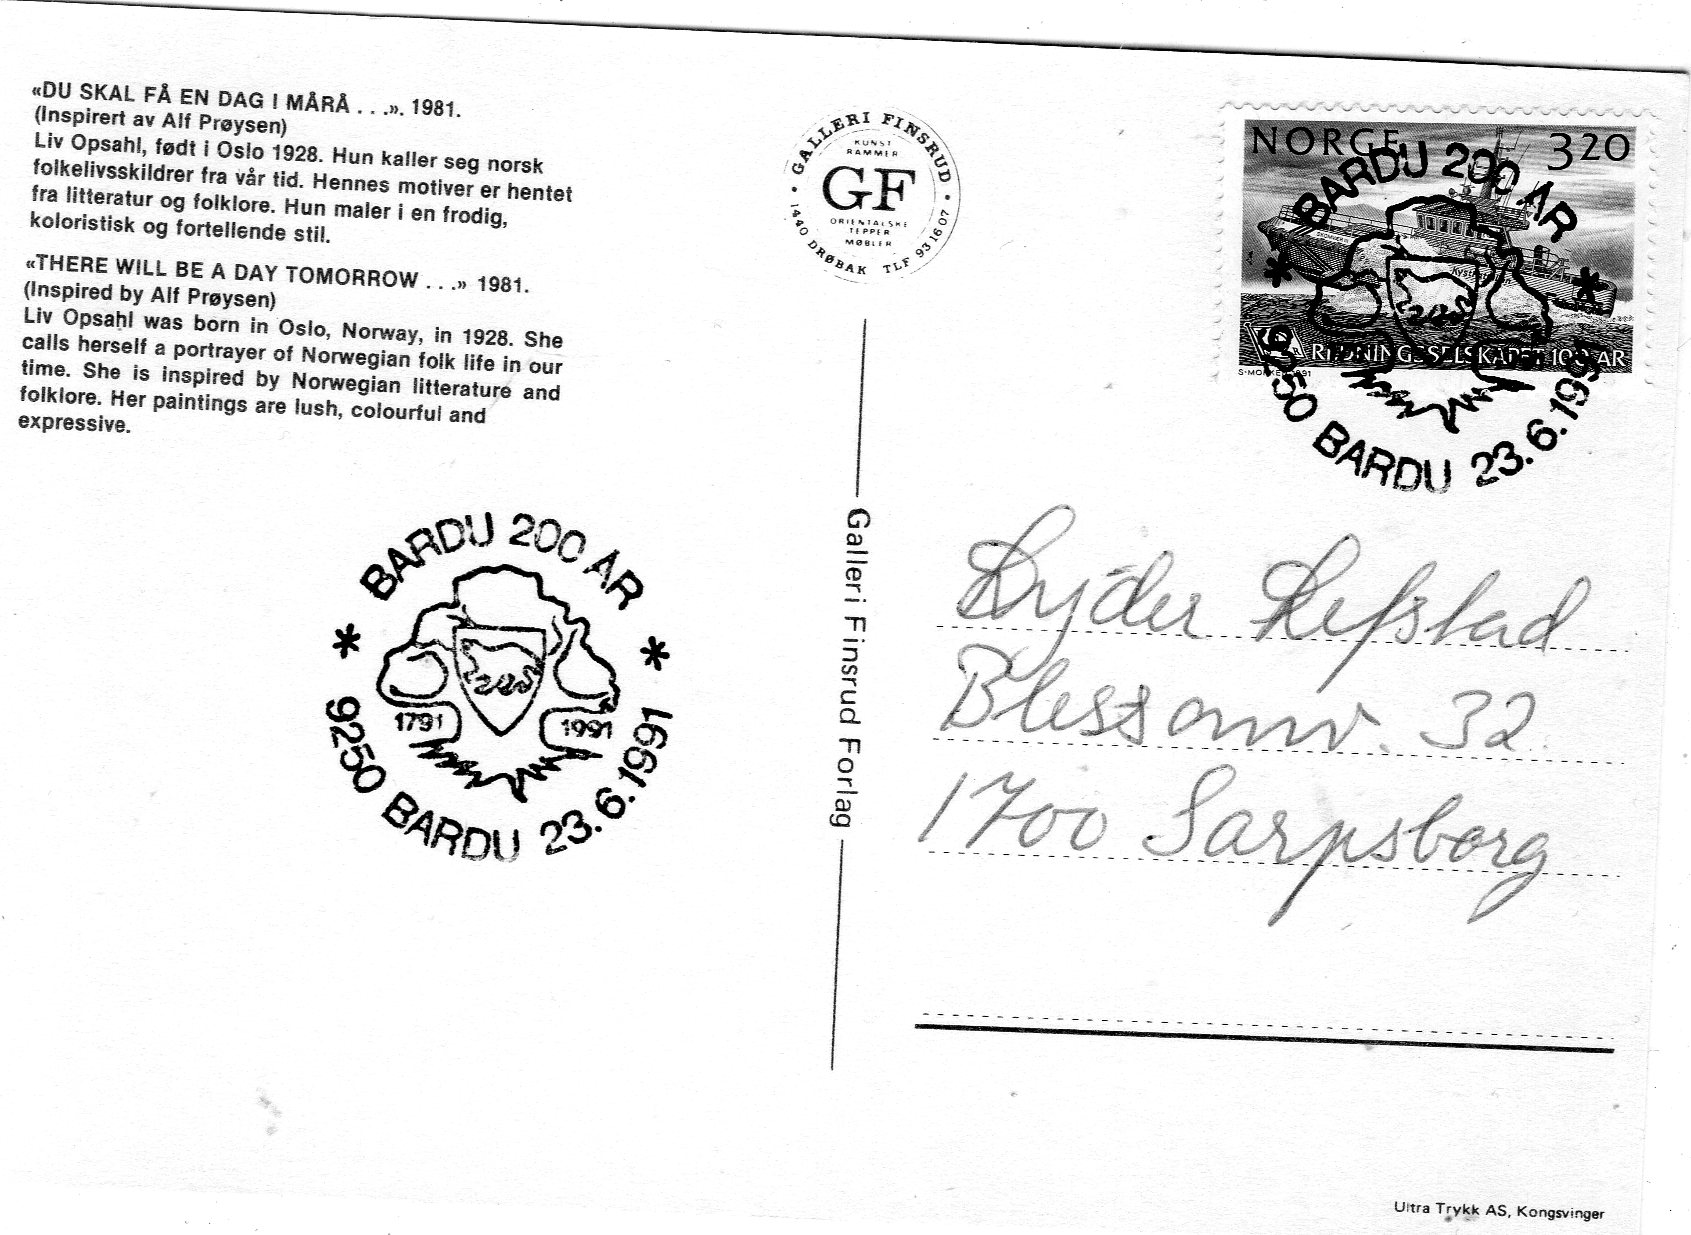 «DU SKAL FÅ EN DAG I MÅRÅ . . .». 1981.
(Inspirert av Alf Prøysen)
Liv Opsahl, født i Oslo 1928. Hun kaller seg norsk
folkelivsskildrer fra vår tid. Hennes motiver er hentet
fra litteratur og folklore. Hun maler i en frodig,
koloristisk og fortellende stil.
«THERE WILL BE A DAY TOMORROW . . .» 1981.
(Inspired by Alf Prøysen)
Liv Opsahl was born in Oslo, Norway, in 1928. She
calls herself a portrayer of Norwegian folk life in our
time. She is inspired by Norwegian litterature and
folklore. Her paintings are lush, colourful and
expressive.
BARDU 200 ÅR
1791 1991
9250 BARDU 23.6.1991
• GALLERI FINSRUD •
KUNST
RAMMER
GF
ORIENTALSKE
TEPPER
MØBLER
1440 DRØBAK TLF 93 16 07
Galleri Finsrud Forlag
NORGE 320
BARDU 200 ÅR
REDNINGSSELSKAPET 100 ÅR
S·MORKEN 1991
9250 BARDU 23.6.1991
Lyder Lefstad
Blessomv. 32
1700 Sarpsborg
Ultra Trykk AS, Kongsvinger